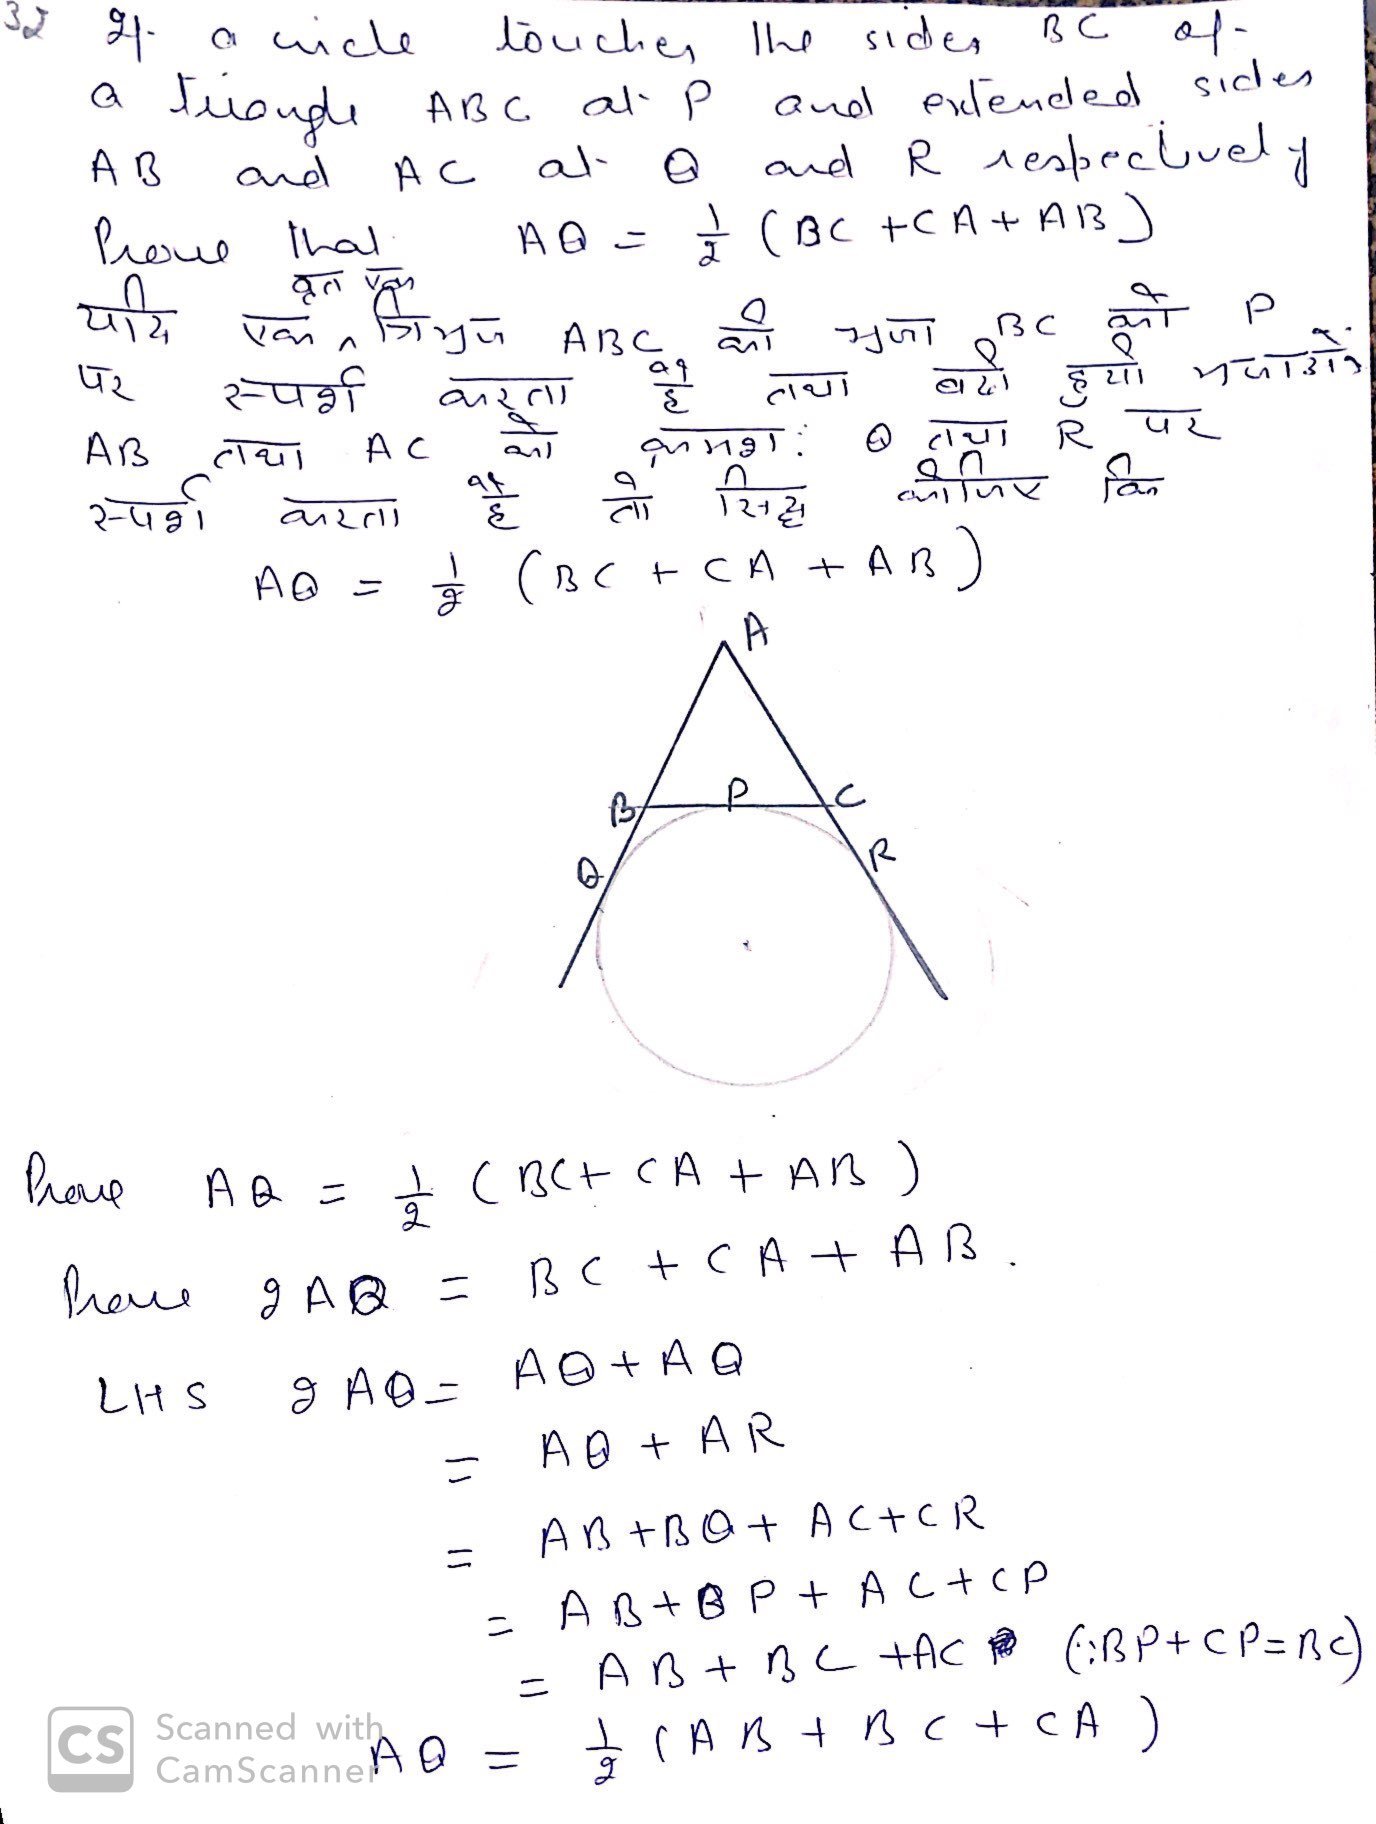 32 If a circle touches the sides BC of
a triangle ABC at P and extended sides
AB and AC at Q and R respectively
Prove that AQ = 1/2 (BC + CA + AB)
वृत एक
यदि एक ^ त्रिभुज ABC की भुजा BC को P
पर स्पर्श करता है तथा बढी हुयी भुजाओं
AB तथा AC को क्रमशः Q तथा R पर
स्पर्श करता है तो सिद्ध कीजिए कि
AQ = 1/2 (BC + CA + AB)
A
B P C
Q R
Prove AQ = 1/2 (BC + CA + AB)
Prove 2AQ = BC + CA + AB.
LHS 2AQ = AQ + AQ
= AQ + AR
= AB + BQ + AC + CR
= AB + BP + AC + CP
= AB + BC + AC (∵ BP + CP = BC)
AQ = 1/2 (AB + BC + CA)
CS Scanned with
CamScanner